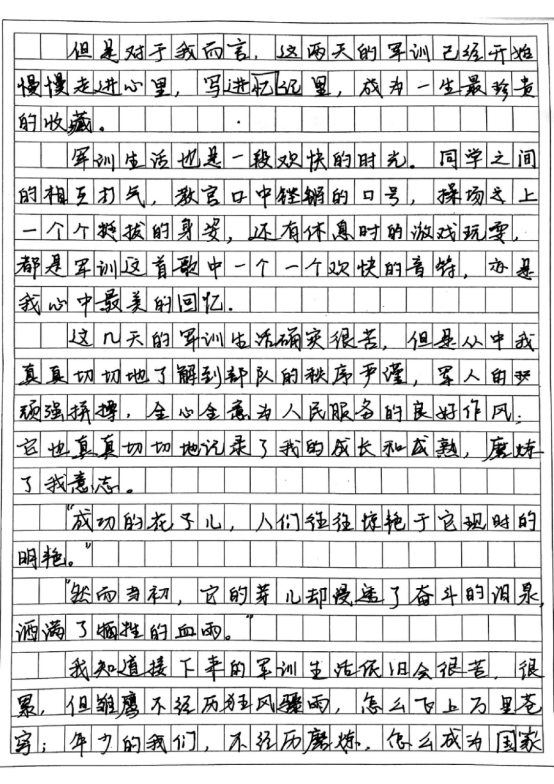 但是对于我而言，这两天的军训已经开始
慢慢走进心里，写进忆记里，成为一生最珍贵
的收藏。
军训生活也是一段欢快的时光。同学之间
的相互打气，教官口中铿锵的口号，操场之上
一个个挺拔的身姿，还有休息时的游戏玩耍，
都是军训这首歌中一个一个欢快的音符，亦是
我心中最美的回忆．
这几天的军训生活确实很苦，但是从中我
真真切切地了解到部队的秩序严谨，军人的
顽强拼搏，全心全意为人民服务的良好作风；
它也真真切切地记录了我的成长和成熟，磨炼
了我意志。
"成功的花子儿，人们往往惊艳于它现时的
明艳。"
"然而当初，它的芽儿却浸透了奋斗的泪泉，
洒满了牺牲的血雨。"
我知道接下来的军训生活依旧会很苦，很
累，但雏鹰不经历狂风骤雨，怎么飞上万里苍
穹；年少的我们，不经历磨炼，怎么成为国家